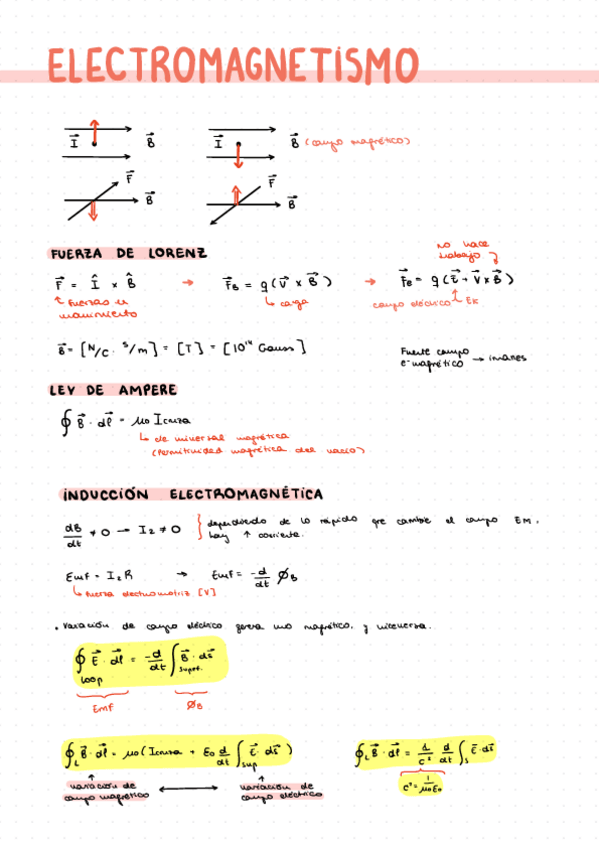 ELECTROMAGNETISMO
I⃗ B⃗ I⃗ B⃗ (campo magnético)
F⃗ B⃗ F⃗ B⃗
FUERZA DE LORENZ
no hace trabajo
F⃗ = Î × B̂ → F⃗_B = q(v⃗ × B⃗) → F⃗_B = q(E⃗ + v⃗ × B⃗)
↑ Fuerzas en movimiento ↳ carga campo eléctrico ↑ Ek
B⃗ = [N/C · s/m] = [T] = [10¹⁴ Gauss]
Fuente campo
e-magnético → imanes
LEY DE AMPERE
∮ B⃗ · dl⃗ = μ0 Icruza
↳ de universal magnética
(permitividad magnética del vacío)
INDUCCIÓN ELECTROMAGNÉTICA
dB/dt ≠ 0 → I₂ ≠ 0 } dependiendo de lo rápido que cambie el campo EM,
hay ↑ corriente.
Emf = I₂R → Emf = -d/dt Ø_B
↳ fuerza electromotriz [V]
• variación de campo eléctrico genera uno magnético, y viceversa.
∮loop E⃗ · dl⃗ = -d/dt ∫superf. B⃗ · ds⃗
Emf Ø_B
∮L B⃗ · dl⃗ = μ0 (Icruza + ε0 d/dt ∫sup E⃗ · ds⃗) ∮L B⃗ · dl⃗ = 1/c² d/dt ∫S E⃗ · ds⃗
c² = 1/μ0ε0
variación de campo magnético ↔ variación de campo eléctrico